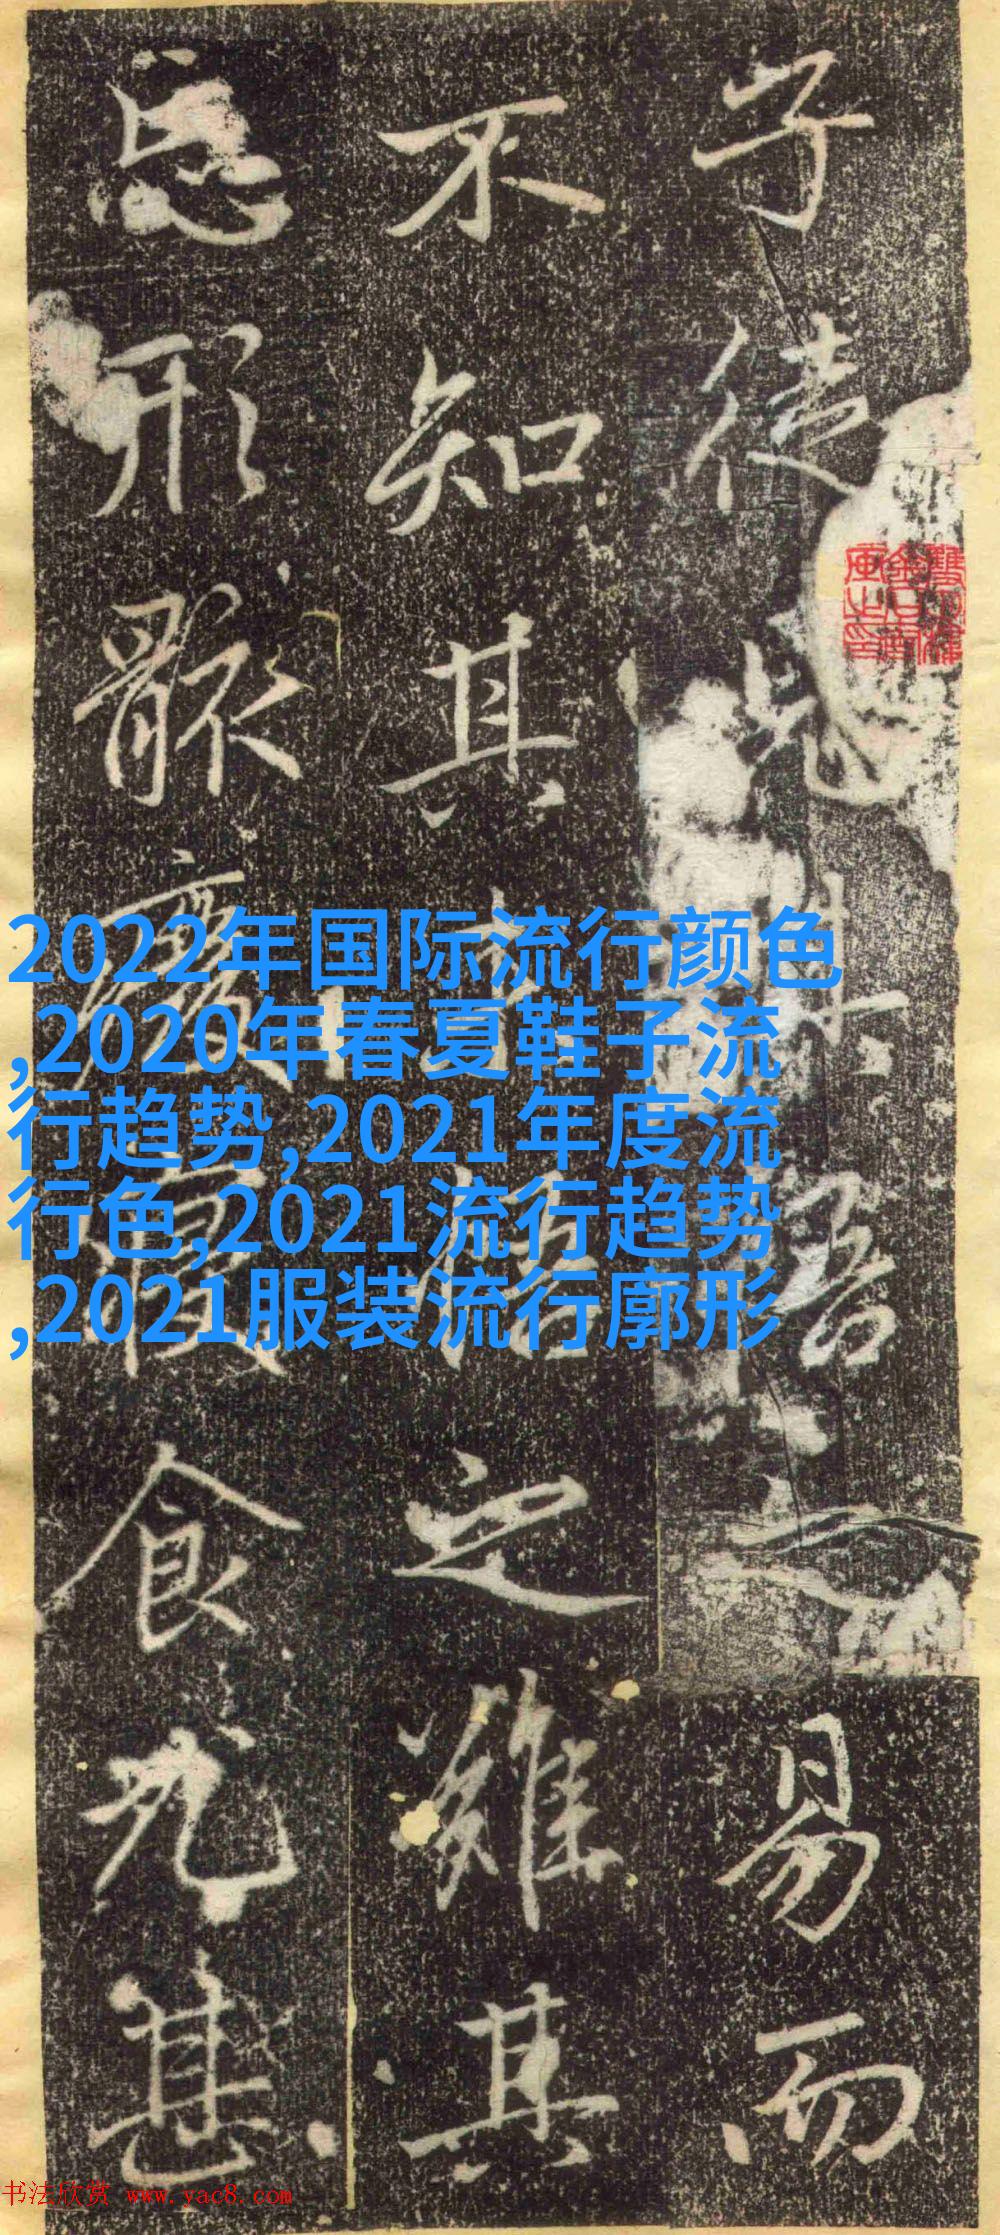 子徒見其之易而
不知其之難其
忘形骸廢食尤甚
2022年国际流行颜色
,2020年春夏鞋子流
行趋势,2021年度流
行色,2021流行趋势
,2021服装流行廓形
书法欣赏 www.yac8.com